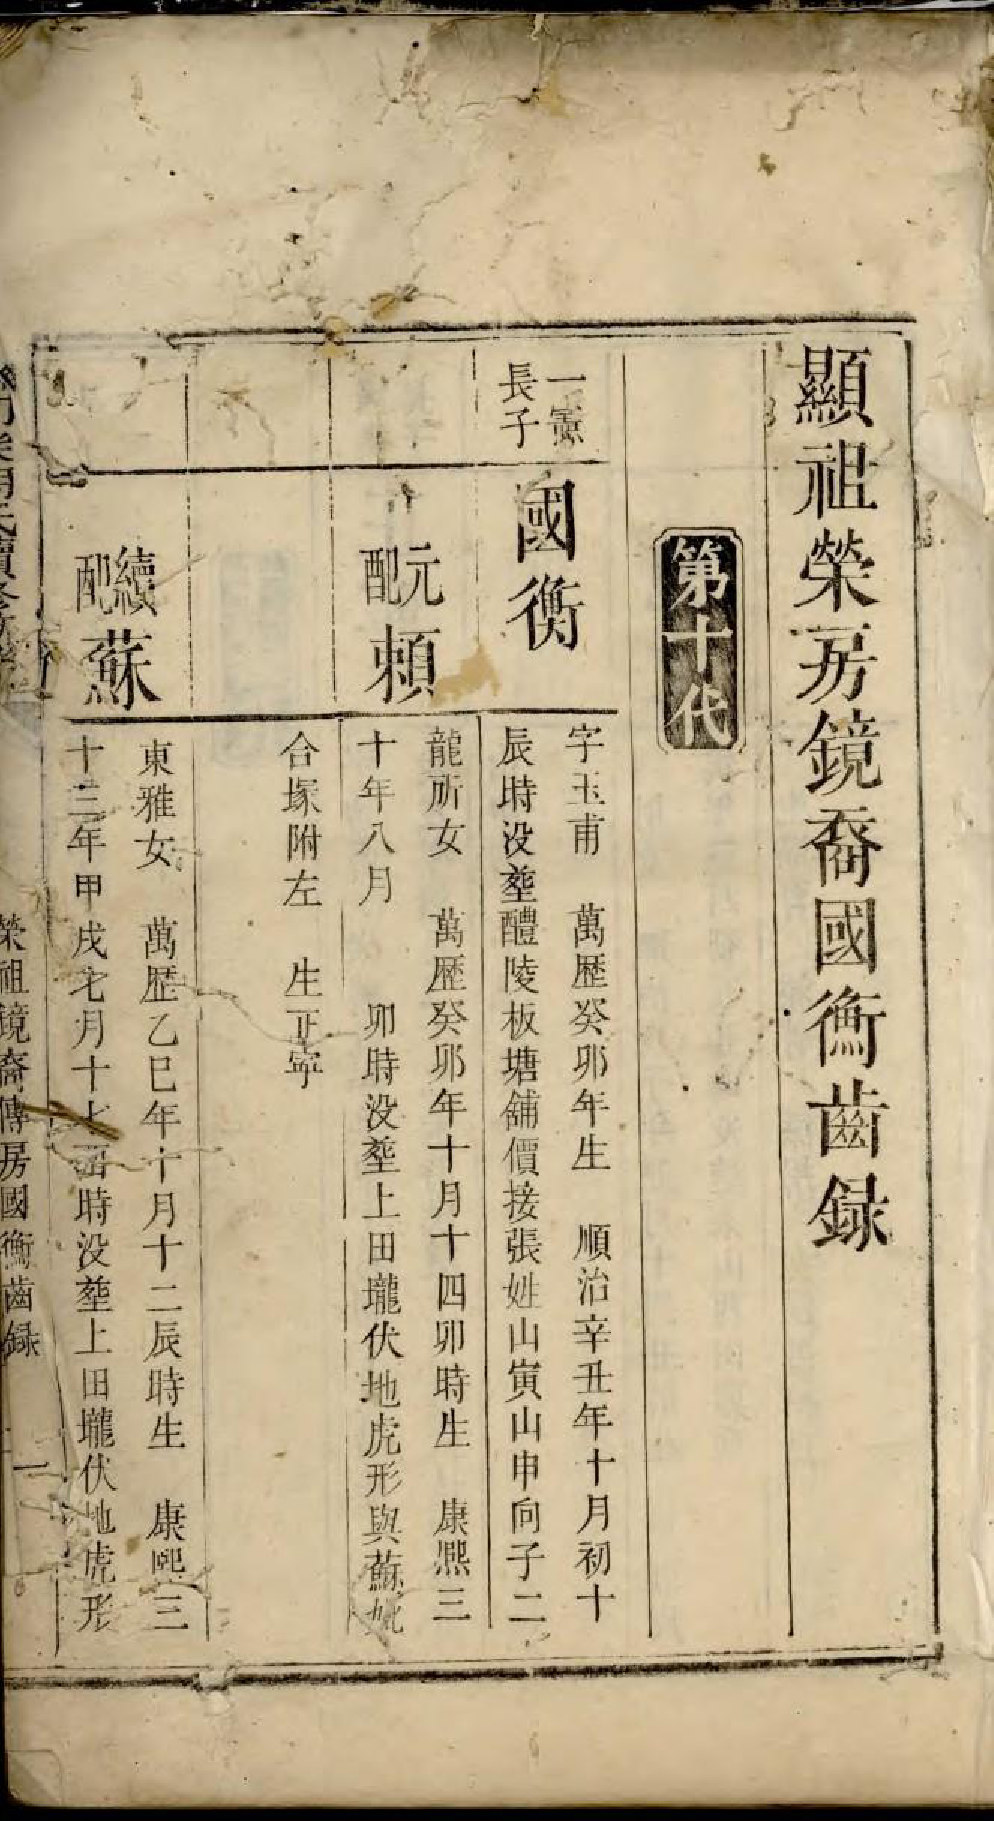 顯祖榮房鏡裔國衡齒録
第十代
一鼒
長子
國衡
字玉甫　萬歷癸夘年生　順治辛丑年十月初十
辰時没塟醴陵板塘舖價接張姓山寅山申向子二
元配頼
龍所女　萬歷癸夘年十月十四夘時生　康熈三
十年八月　夘時没塟上田壠伏地虎形與蘇妣
合塚附左　生正寜
續配蘇
東雅女　萬歷乙巳年十月十二辰時生　康熈三
十三年甲戌七月十七酉時没塟上田壠伏地虎形
榮祖鏡裔傳房國衡齒録　一